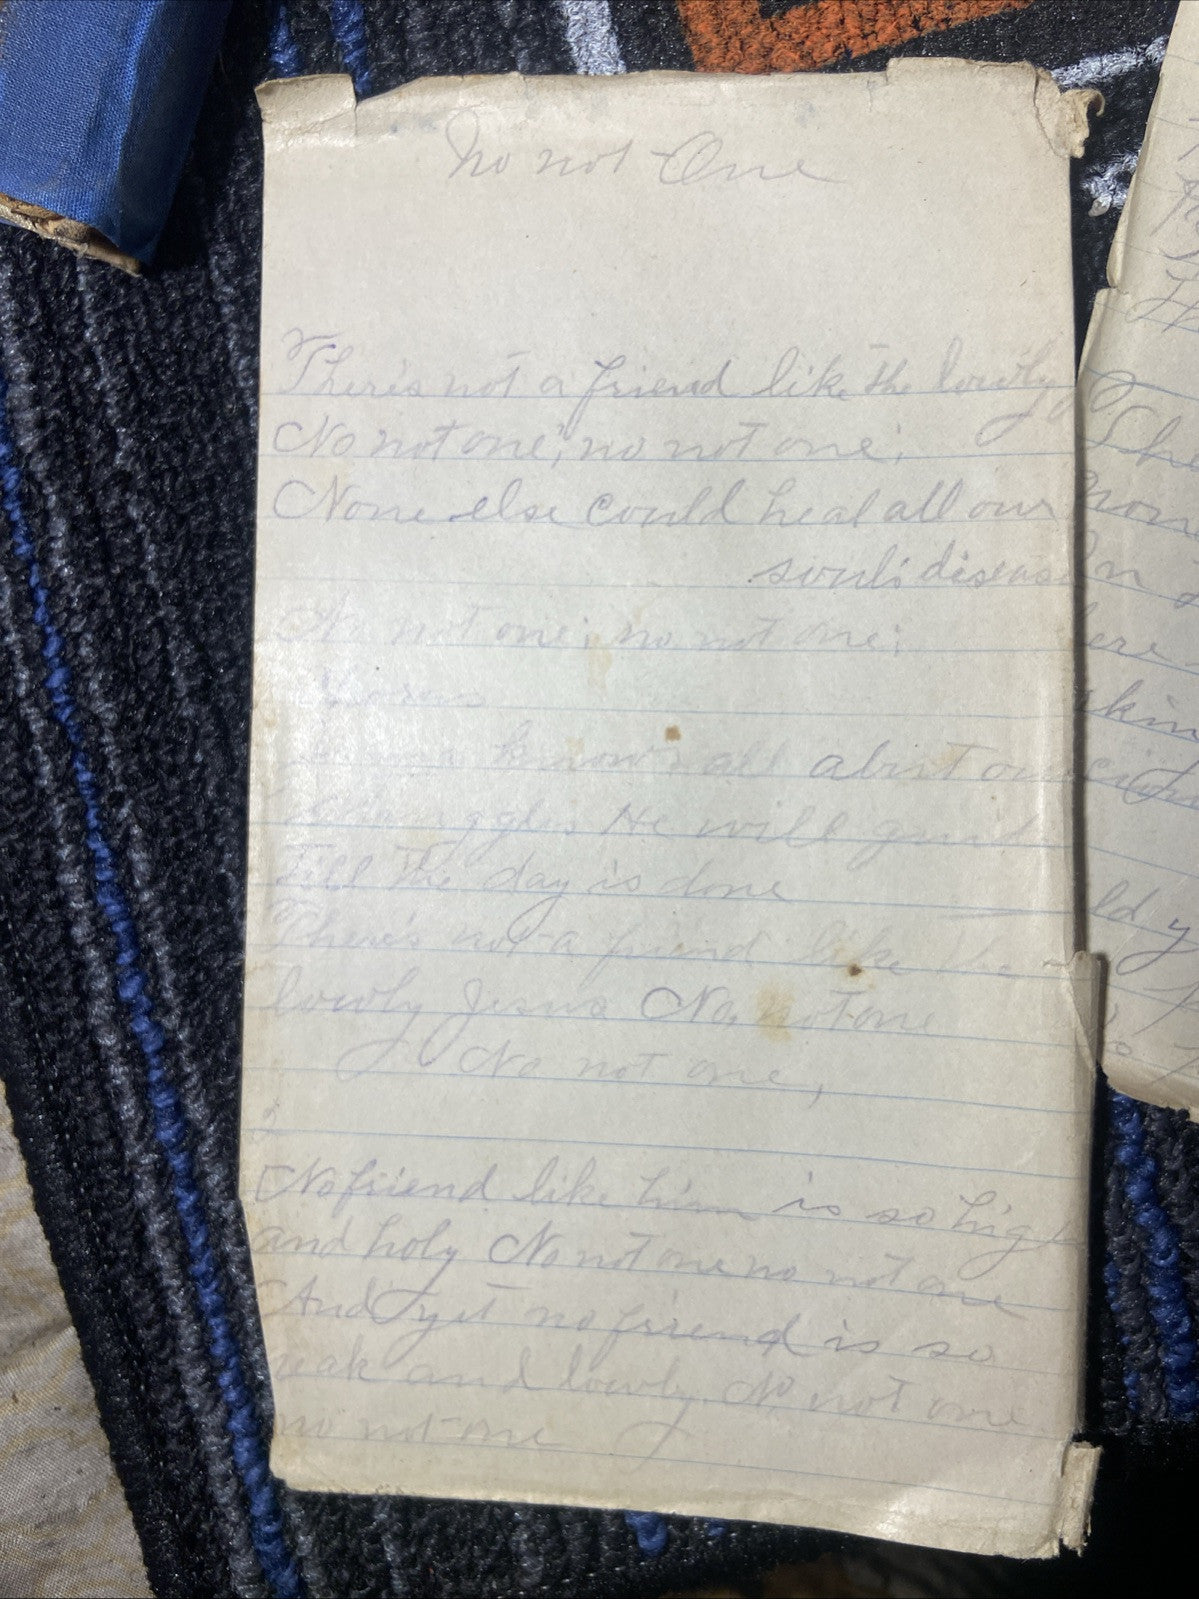 No not One
There's not a friend like the lowly J
No not one; no not one;
None else could heal all our
soul's diseas
No not one; no not one;
know all about our
struggles He will guid
Till the day is done
There's not a friend like the
lowly Jesus No, not one
No not one,
No friend like him is so high
and holy No not one no not one
And yet no friend is so
meak and lowly No not one
no not one